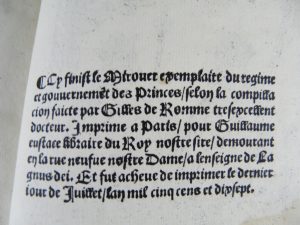 Cy finist le Mirouer exemplaire du regime
et gouvernemēt des Princes/selon la compilla
cion faicte par Gilles de Romme tresexcellent
docteur. Imprime a Paris/pour Guillaume
eustace libraire du Roy nostre sire/demourant
en la rue neufue nostre Dame/a lenseigne de La
gnus dei. Et fut acheue de imprimer le dernier
iour de Juillet/lan mil cinq cens et dixsept.